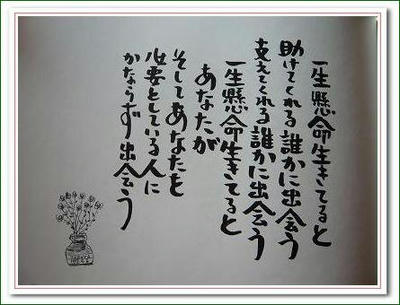 一生懸命生きてると
助けてくれる誰かに出会う
支えてくれる誰かに出会う
一生懸命生きてると
あなたが
そしてあなたを
必要としている人に
かならず出会う